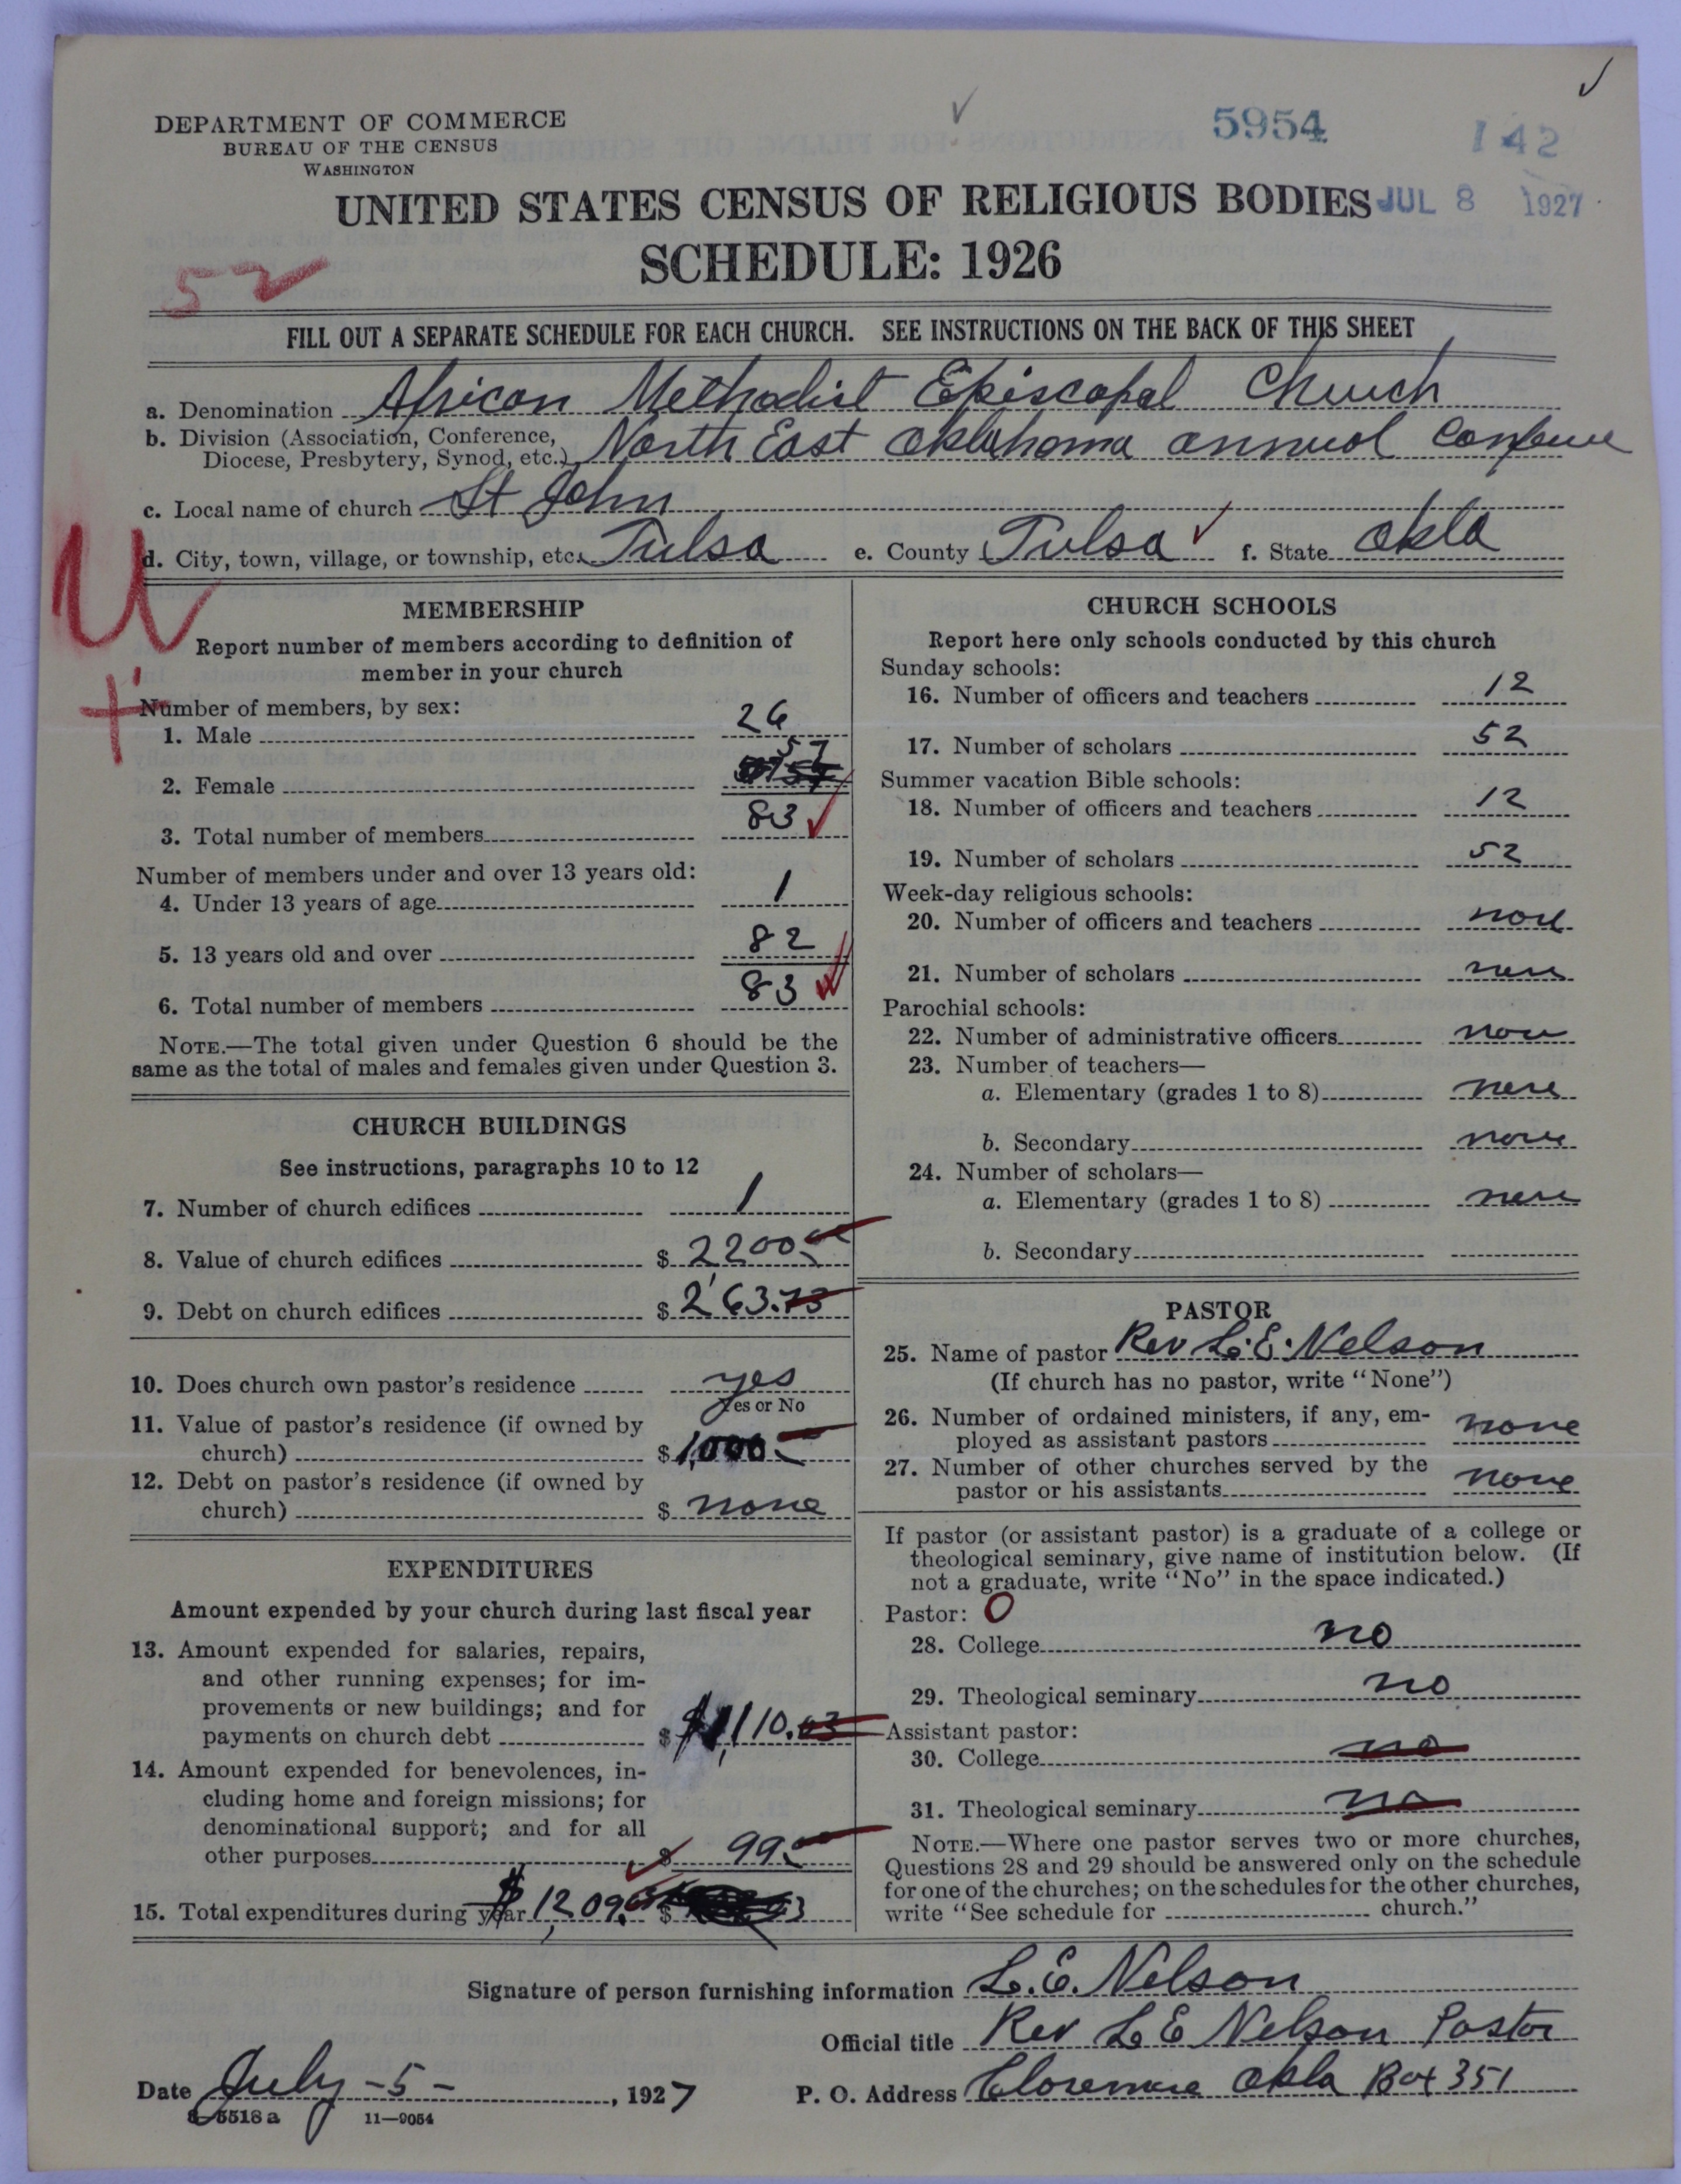 DEPARTMENT OF COMMERCE
BUREAU OF THE CENSUS
WASHINGTON
5954
142
UNITED STATES CENSUS OF RELIGIOUS BODIES JUL 8 1927
SCHEDULE: 1926
52
FILL OUT A SEPARATE SCHEDULE FOR EACH CHURCH. SEE INSTRUCTIONS ON THE BACK OF THIS SHEET
a. Denomination African Methodist Episcopal Church
b. Division (Association, Conference, Diocese, Presbytery, Synod, etc.) North East Oklahoma annual
c. Local name of church St John
d. City, town, village, or township, etc. Tulsa e. County Tulsa f. State Okla
U
MEMBERSHIP
Report number of members according to definition of
member in your church
Number of members, by sex:
1. Male 26
2. Female 57
3. Total number of members 83
Number of members under and over 13 years old:
4. Under 13 years of age 1
5. 13 years old and over 82
6. Total number of members 83
NOTE.—The total given under Question 6 should be the
same as the total of males and females given under Question 3.
CHURCH BUILDINGS
See instructions, paragraphs 10 to 12
7. Number of church edifices 1
8. Value of church edifices $ 2200.00
9. Debt on church edifices $ 263.73
10. Does church own pastor's residence yes
Yes or No
11. Value of pastor's residence (if owned by
church) $ 1,000
12. Debt on pastor's residence (if owned by
church) $ none
EXPENDITURES
Amount expended by your church during last fiscal year
13. Amount expended for salaries, repairs,
and other running expenses; for im-
provements or new buildings; and for
payments on church debt $ $1,110.03
14. Amount expended for benevolences, in-
cluding home and foreign missions; for
denominational support; and for all
other purposes $ 99.00
15. Total expenditures during year $1,209. $
CHURCH SCHOOLS
Report here only schools conducted by this church
Sunday schools:
16. Number of officers and teachers 12
17. Number of scholars 52
Summer vacation Bible schools:
18. Number of officers and teachers 12
19. Number of scholars 52
Week-day religious schools:
20. Number of officers and teachers none
21. Number of scholars none
Parochial schools:
22. Number of administrative officers none
23. Number of teachers—
a. Elementary (grades 1 to 8) none
b. Secondary none
24. Number of scholars—
a. Elementary (grades 1 to 8) none
b. Secondary
PASTOR
25. Name of pastor Rev L. E. Nelson
(If church has no pastor, write "None")
26. Number of ordained ministers, if any, em-
ployed as assistant pastors none
27. Number of other churches served by the
pastor or his assistants none
If pastor (or assistant pastor) is a graduate of a college or
theological seminary, give name of institution below. (If
not a graduate, write "No" in the space indicated.)
Pastor: O
28. College no
29. Theological seminary no
Assistant pastor:
30. College no
31. Theological seminary no
NOTE.—Where one pastor serves two or more churches,
Questions 28 and 29 should be answered only on the schedule
for one of the churches; on the schedules for the other churches,
write "See schedule for church."
Signature of person furnishing information L. E. Nelson
Official title Rev L E Nelson Pastor
Date July -5-, 1927 P. O. Address Okla Box 351
8-5518 a 11—9054